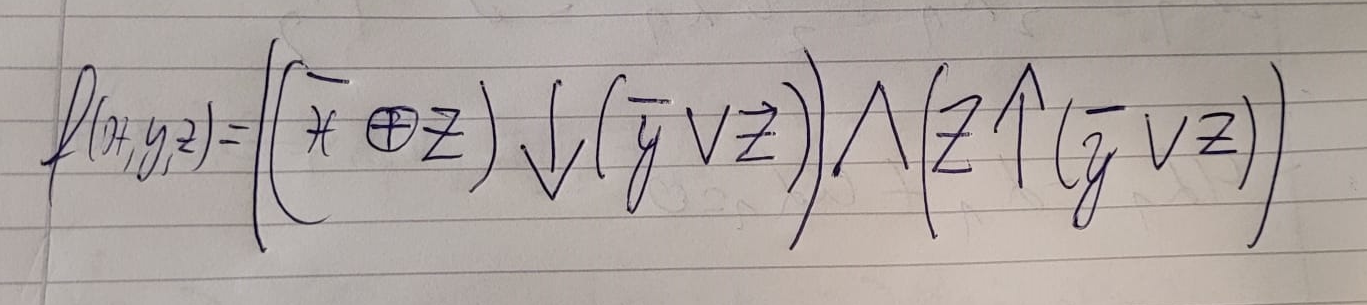 f(x,y,z)=((x̄ ⊕ z) ↓ (ȳ ∨ z)) ∧ (z ↑ (ȳ ∨ z))